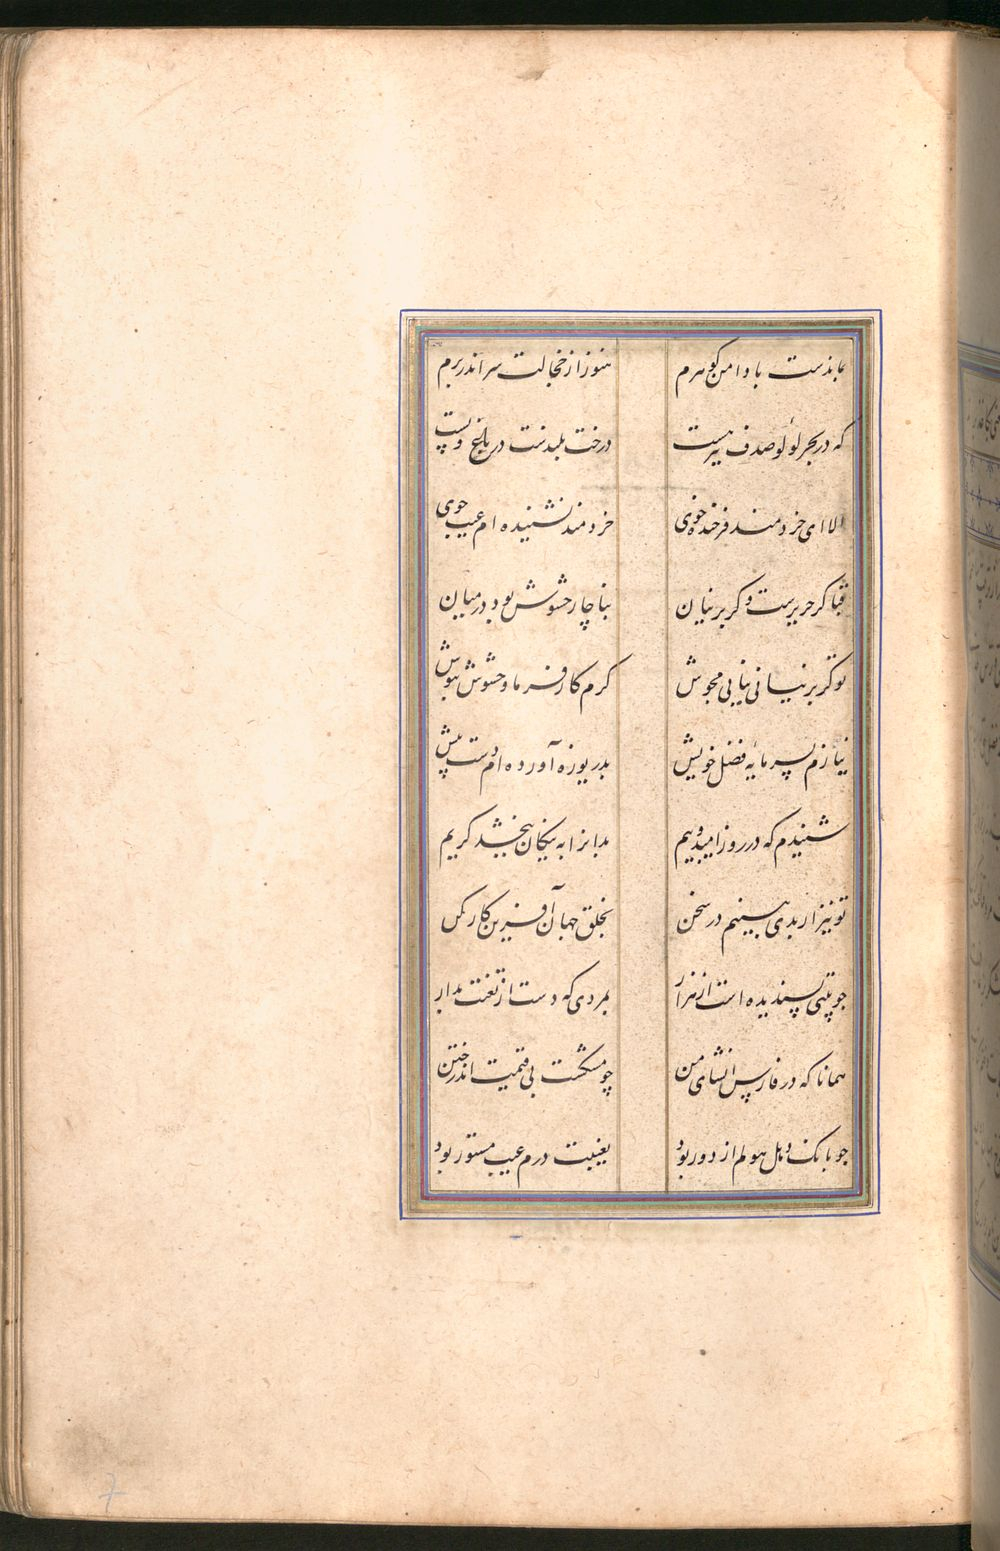 بماندست با دامن گوهرم هنوز از خجالت سر اندر برم
که در بحر لؤلؤ صدف نیز هست درخت بلندست در باغ و پست
الا ای خردمند فرخنده خوی خردمند نشنیده ام عیب جوی
قبا گر حریرست و گر پرنیان بناچار حشوش بود در میان
تو گر پرنیانی نیابی مجوش کرم کار فرما و حشوش بپوش
ننازم بسرمایه فضل خویش بدریوزه آورده ام دست پیش
شنیدم که در روز امید و بیم بدانرا به نیکان ببخشد کریم
تو نیز ار بدی بینیم در سخن بخلق جهان آفرین کار کن
چو بیتی پسندیده است از هزار بمردی که دست از تعنت بدار
همانا که در فارس انشای من چو مشکست بی قیمت اندر ختن
چو بانک دهل هولم از دور بود بغیبت درم عیب مستور بود
7